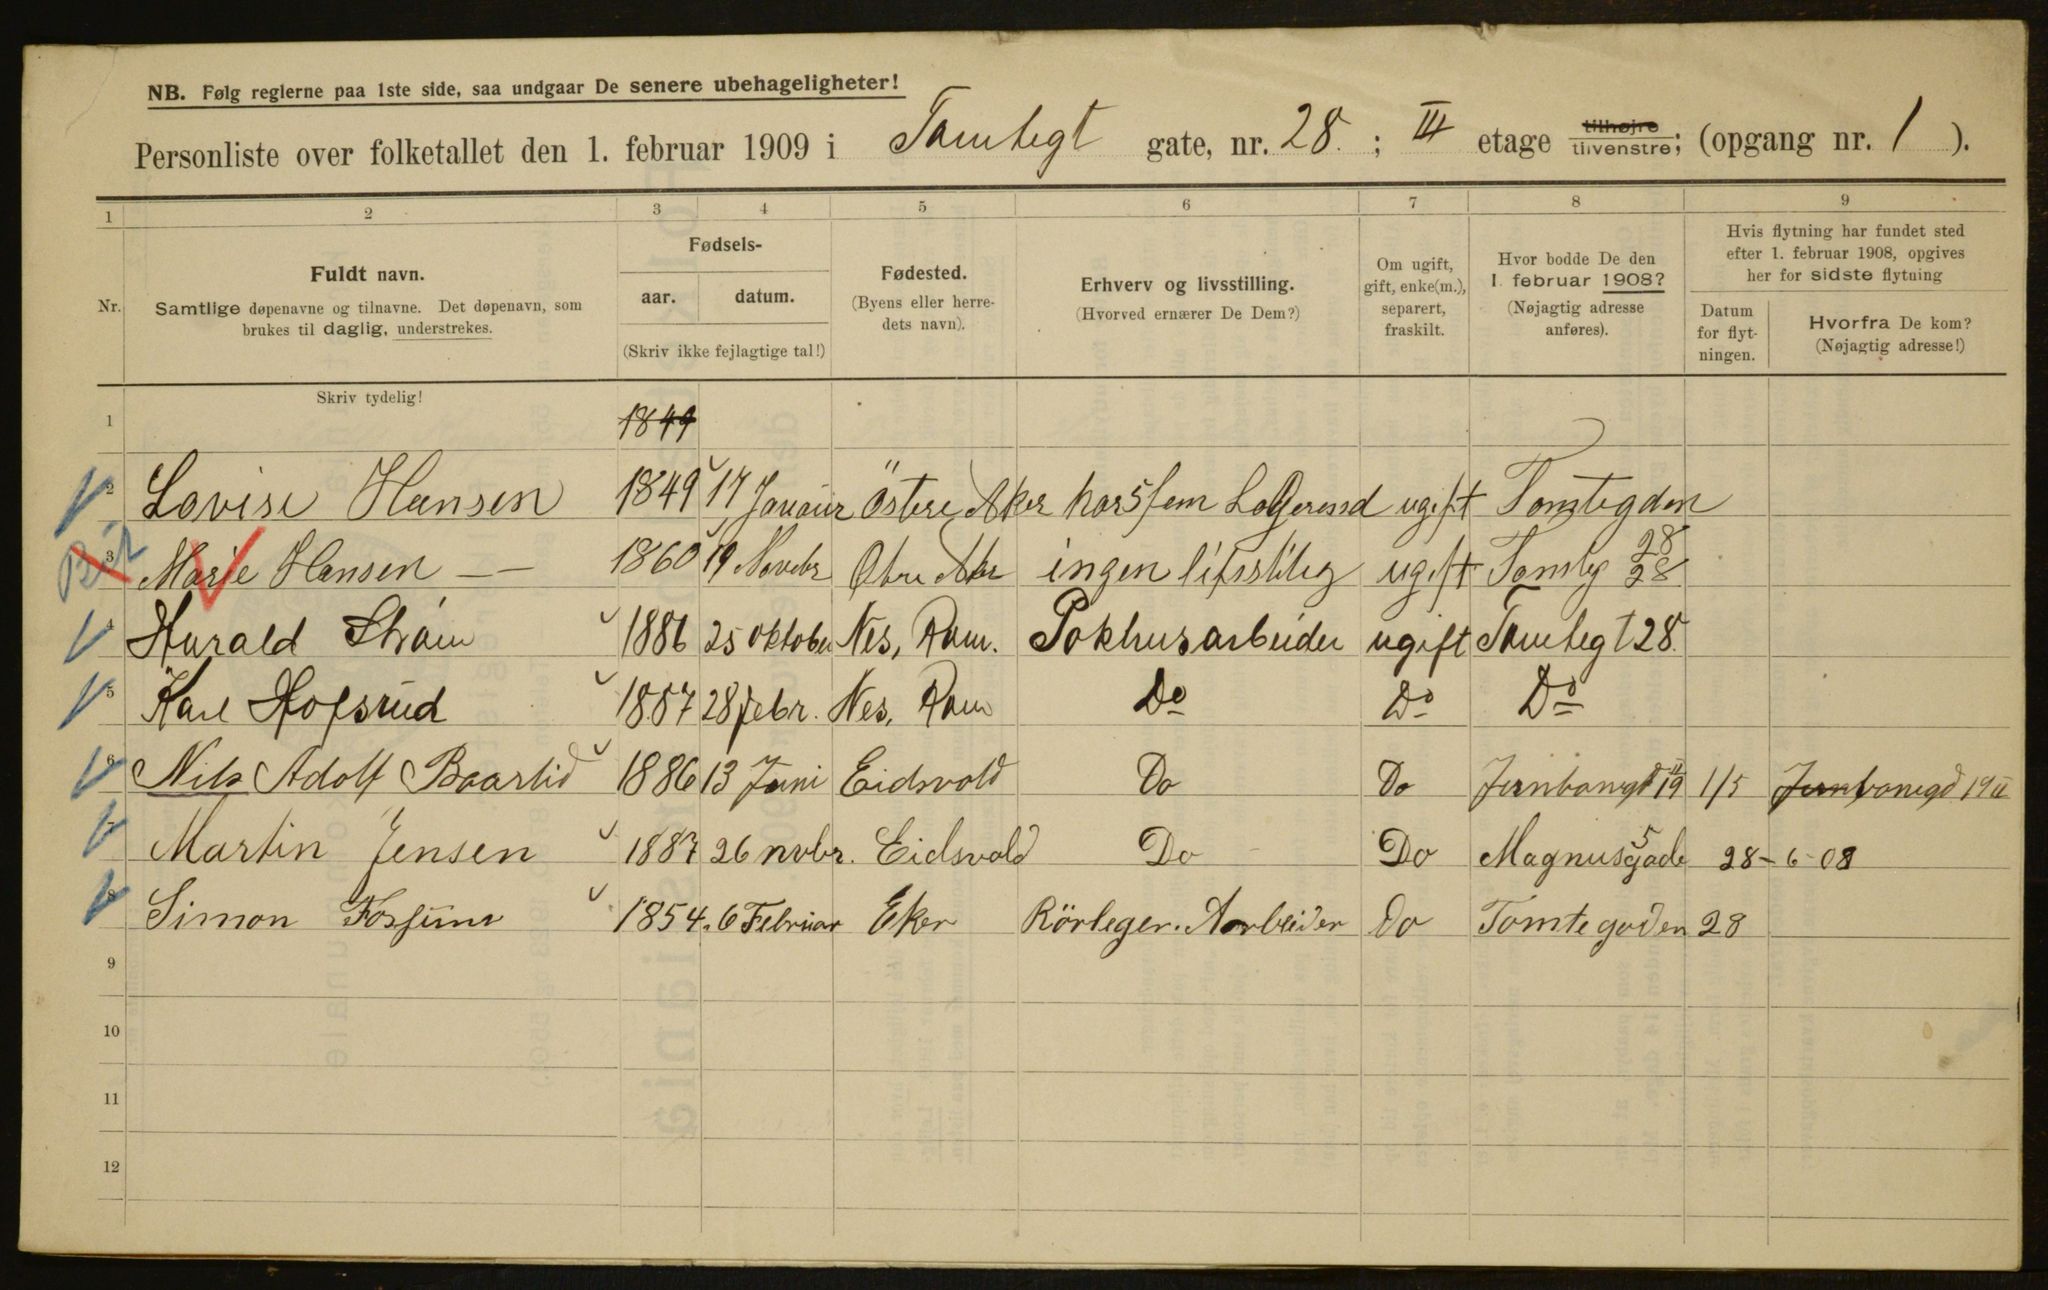 NB. Følg reglerne paa 1ste side, saa undgaar De senere ubehageligheter!
Personliste over folketallet den 1. februar 1909 i Tomtegt gate, nr. 28. ; III etage tilhøjre tilvenstre; (opgang nr. 1 ).
1 2 3 4 5 6 7 8 9
Nr.
Fuldt navn.
Samtlige døpenavne og tilnavne. Det døpenavn, som
brukes til daglig, understrekes.
Fødsels-
aar. datum.
(Skriv ikke fejlagtige tal!)
Fødested.
(Byens eller herre-
dets navn).
Erhverv og livsstilling.
(Hvorved ernærer De Dem?)
Om ugift,
gift, enke(m.),
separert,
fraskilt.
Hvor bodde De den
1. februar 1908?
(Nøjagtig adresse
anføres).
Hvis flytning har fundet sted
efter 1. februar 1908, opgives
her for sidste flytning
Datum
for flyt-
ningen.
Hvorfra De kom?
(Nøjagtig adresse!)
Skriv tydelig!
1 1849
2 Lovise Hansen 1849 17 Januar Östere Aker har 5 fem ugift Tomtegden 28
3 Marie Hansen 1860 19 Novebr Aker ingen ugift Tomteg 28
4 Harald Strøm 1886 25 oktober Nes, Rom. Pakhusarbeider ugift Tomtegt 28.
5 Karl Hofsrud 1887 28 febr. Nes, Rom Do Do Do
6 Nils Adolf Baarlid 1886 13 Juni Eidsvold Do Do Jernbanegd 19 II 1/5 Jernbanegd 19 II
7 Martin Jensen 1887 26 nvbr. Eidsvold Do Do Magnusgade 5 28-6-08
8 Simon Fossum 1854. 6 Februar Eker Rörleger. Aarbeider Do Tomtegaden 28
9
10
11
12